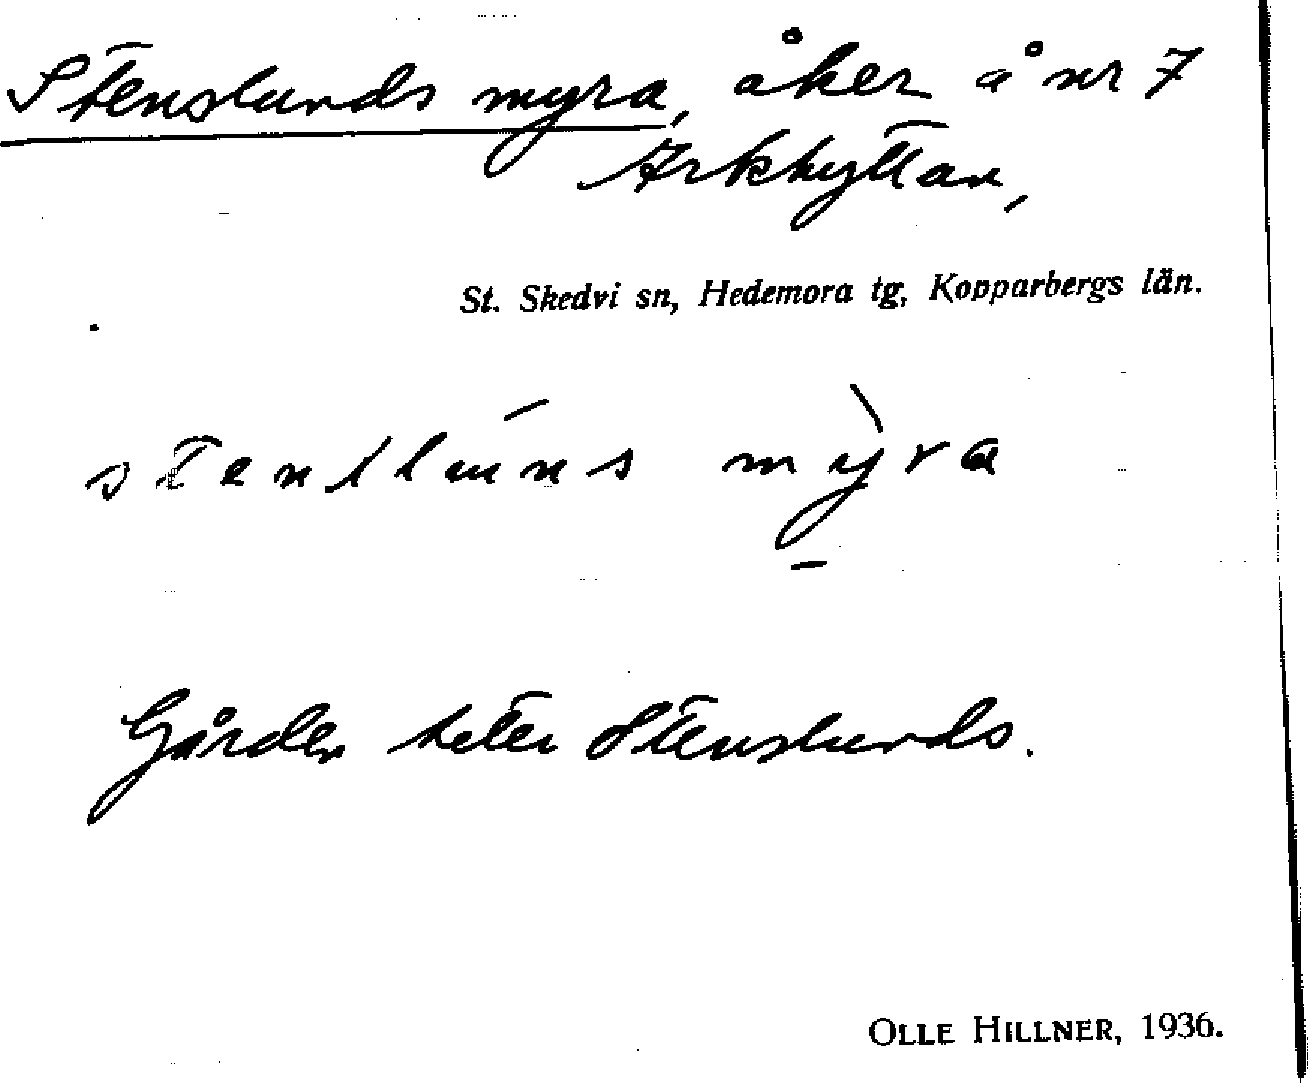 Stenslunds myra, åker å nr 7
Arkhyttan,
St. Skedvi sn, Hedemora tg, Kopparbergs län.
stenslúns mỳra
Gården heter Stenslunds.
OLLE HILLNER, 1936.